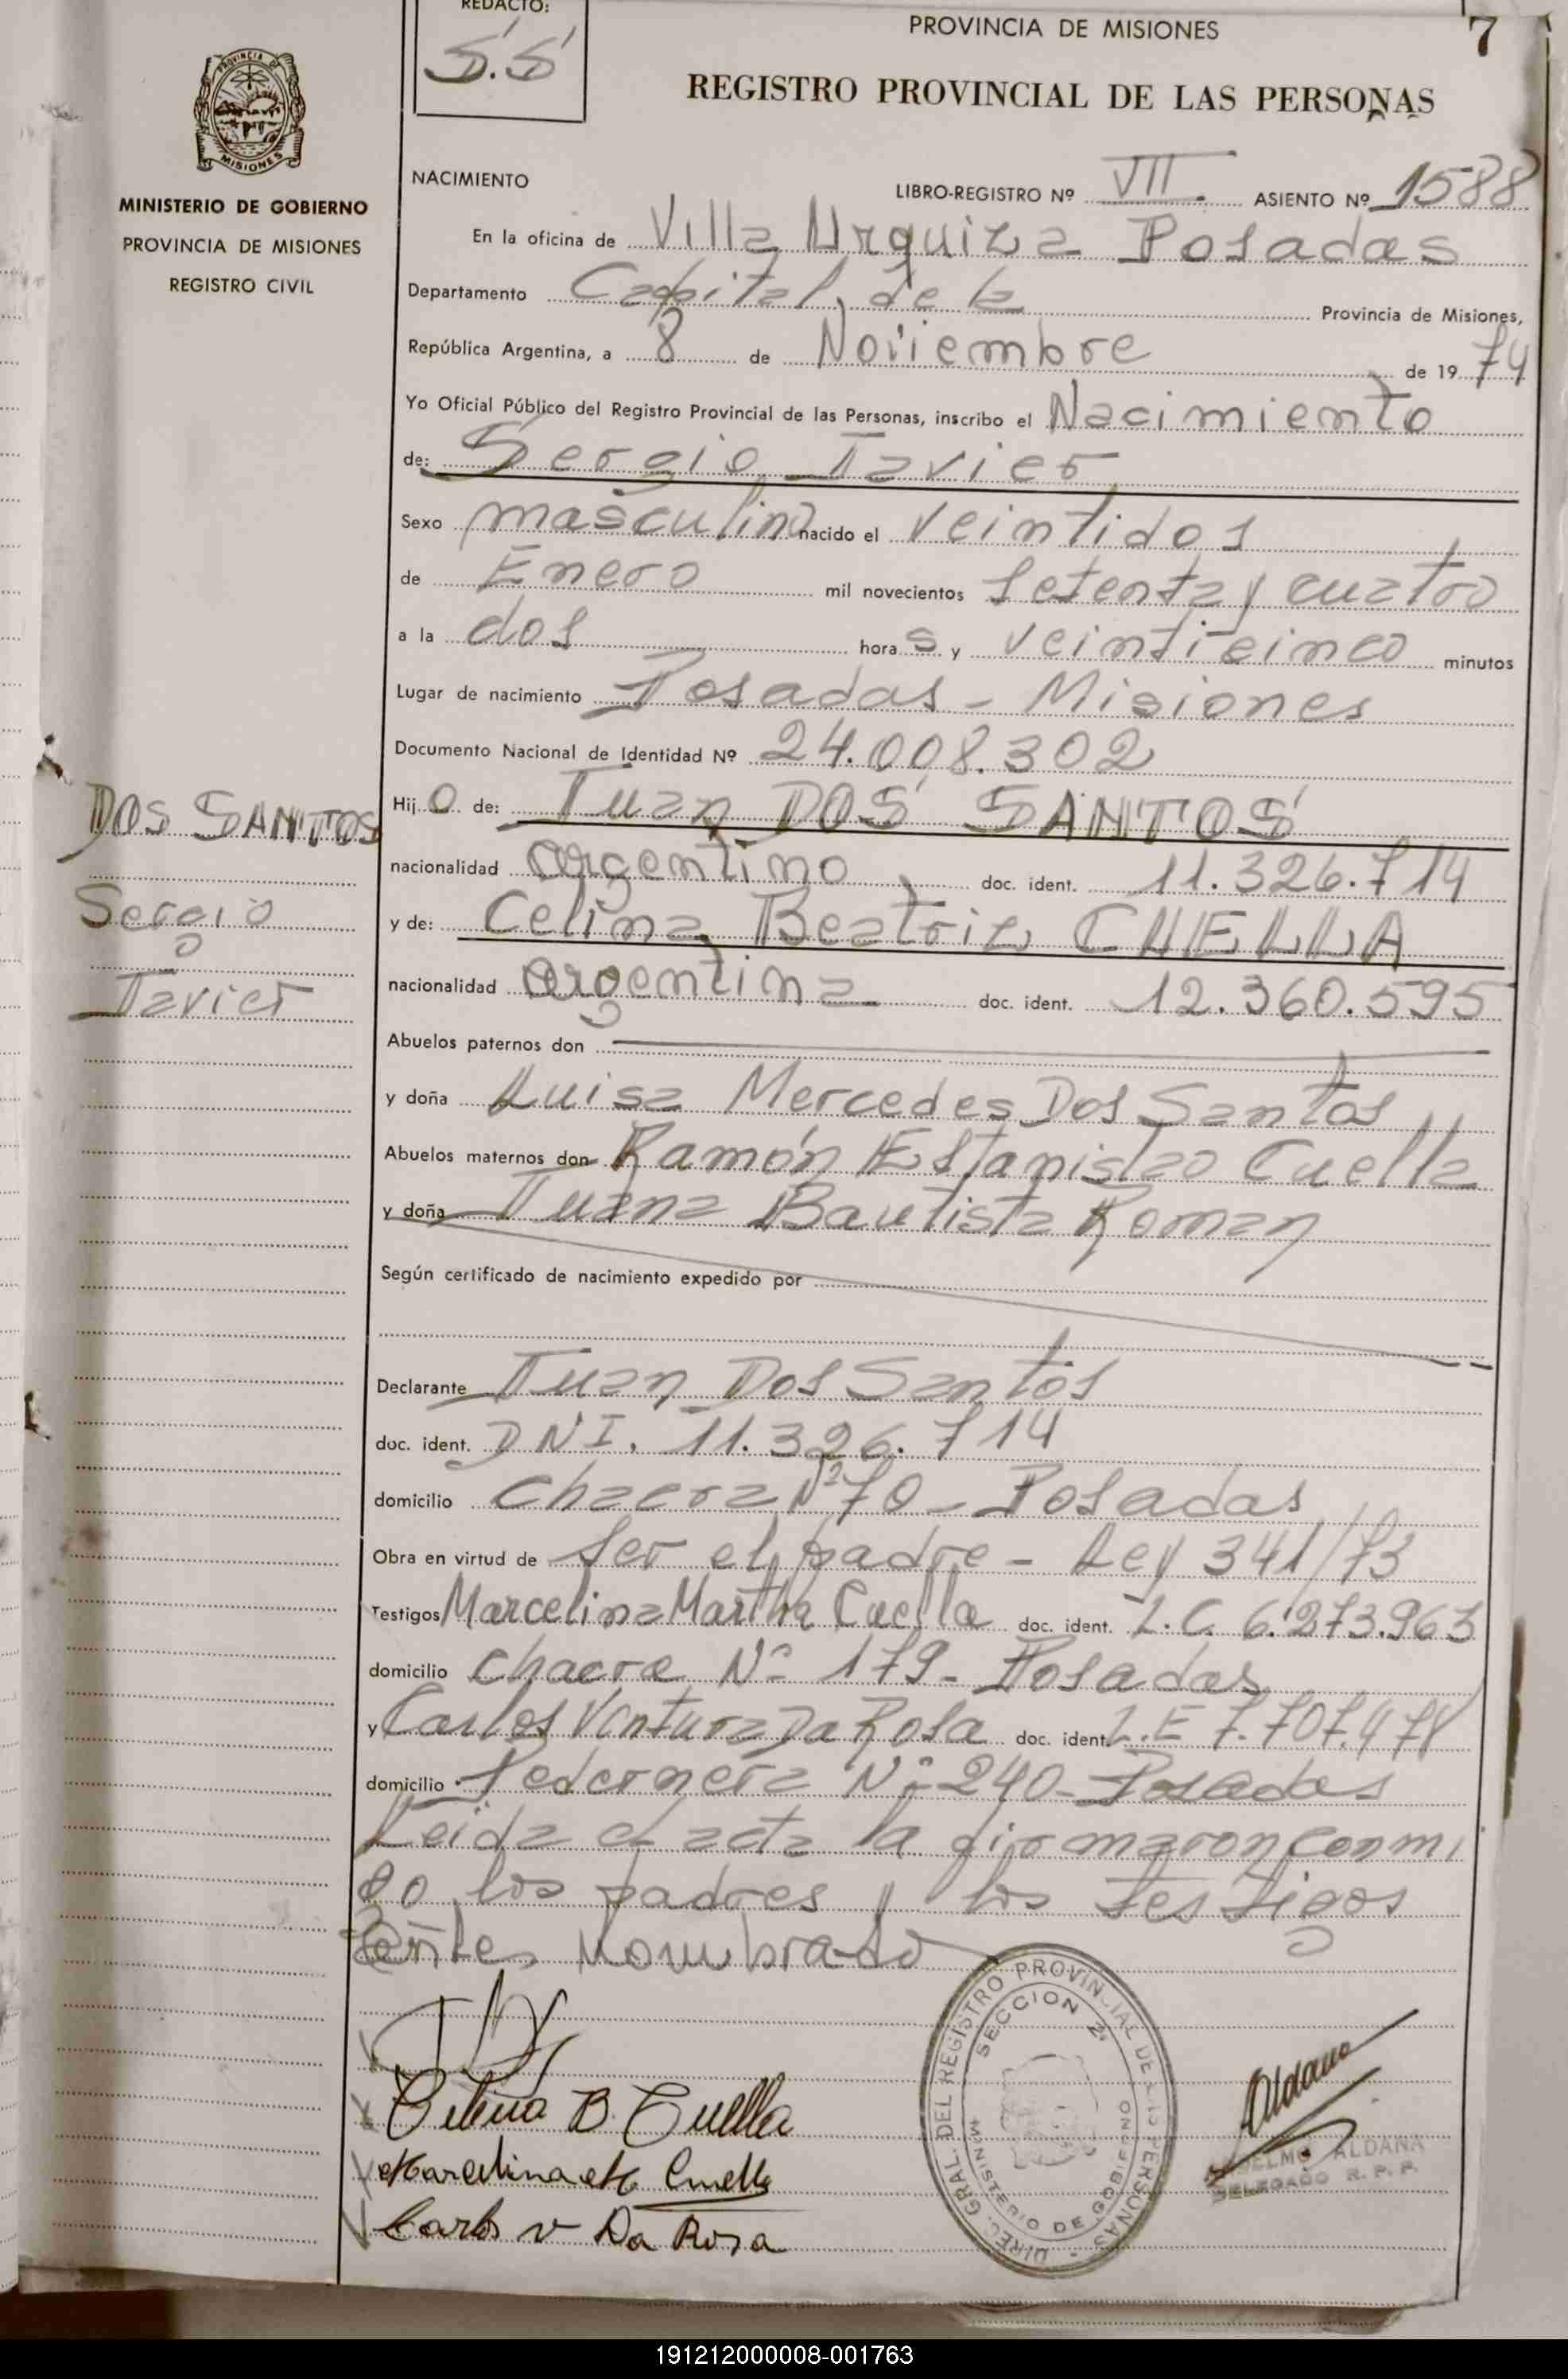 REDACTO:
S.S
PROVINCIA DE MISIONES
7
REGISTRO PROVINCIAL DE LAS PERSONAS
PROVINCIA DE
MISIONES
MINISTERIO DE GOBIERNO
PROVINCIA DE MISIONES
REGISTRO CIVIL
NACIMIENTO
LIBRO-REGISTRO Nº VII. ASIENTO Nº 1588
En la oficina de Villa Urquiza Posadas
Departamento Capital de la Provincia de Misiones,
República Argentina, a 8 de Noviembre de 1974
Yo Oficial Público del Registro Provincial de las Personas, inscribo el Nacimiento
de: Sergio Javier
Sexo masculino nacido el veintidos
de Enero mil novecientos setenta y cuatro
a la dos hora s y veinticinco minutos
Lugar de nacimiento Posadas - Misiones
Documento Nacional de Identidad Nº 24.008.302
DOS SANTOS
Sergio
Javier
Hij o de: Juan DOS SANTOS
nacionalidad argentino doc. ident. 11.326.714
y de: Celina Beatriz CUELLA
nacionalidad argentina doc. ident. 12.360.595
Abuelos paternos don
y doña Luisa Mercedes Dos Santos
Abuelos maternos don Ramón Estanislao Cuella
y doña Juana Bautista Roman
Según certificado de nacimiento expedido por
Declarante Juan Dos Santos
doc. ident. DNI. 11.326.714
domicilio chacra Nº 70 - Posadas
Obra en virtud de ser el padre - Ley 341/73
Testigos Marcelina Martha Cuella doc. ident. L.C. 6.273.963
domicilio chacra Nº 179 - Posadas
y Carlos Ventura Da Rosa doc. ident. L.E 7.707.478
domicilio Pedernera Nº 240 - Posadas
Leida el acta la firmaron conmi
go los padres y los testigos
antes Nombrado
Celina B. Cuella
Marcelina M Cuella
Carlos V Da Rosa
DIREC. GRAL. DEL REGISTRO PROVINCIAL DE LAS PERSONAS
SECCION 2ª
MINISTERIO DE GOBIERNO
Aldana
ALDANA
DELEGADO R. P. P.
191212000008-001763